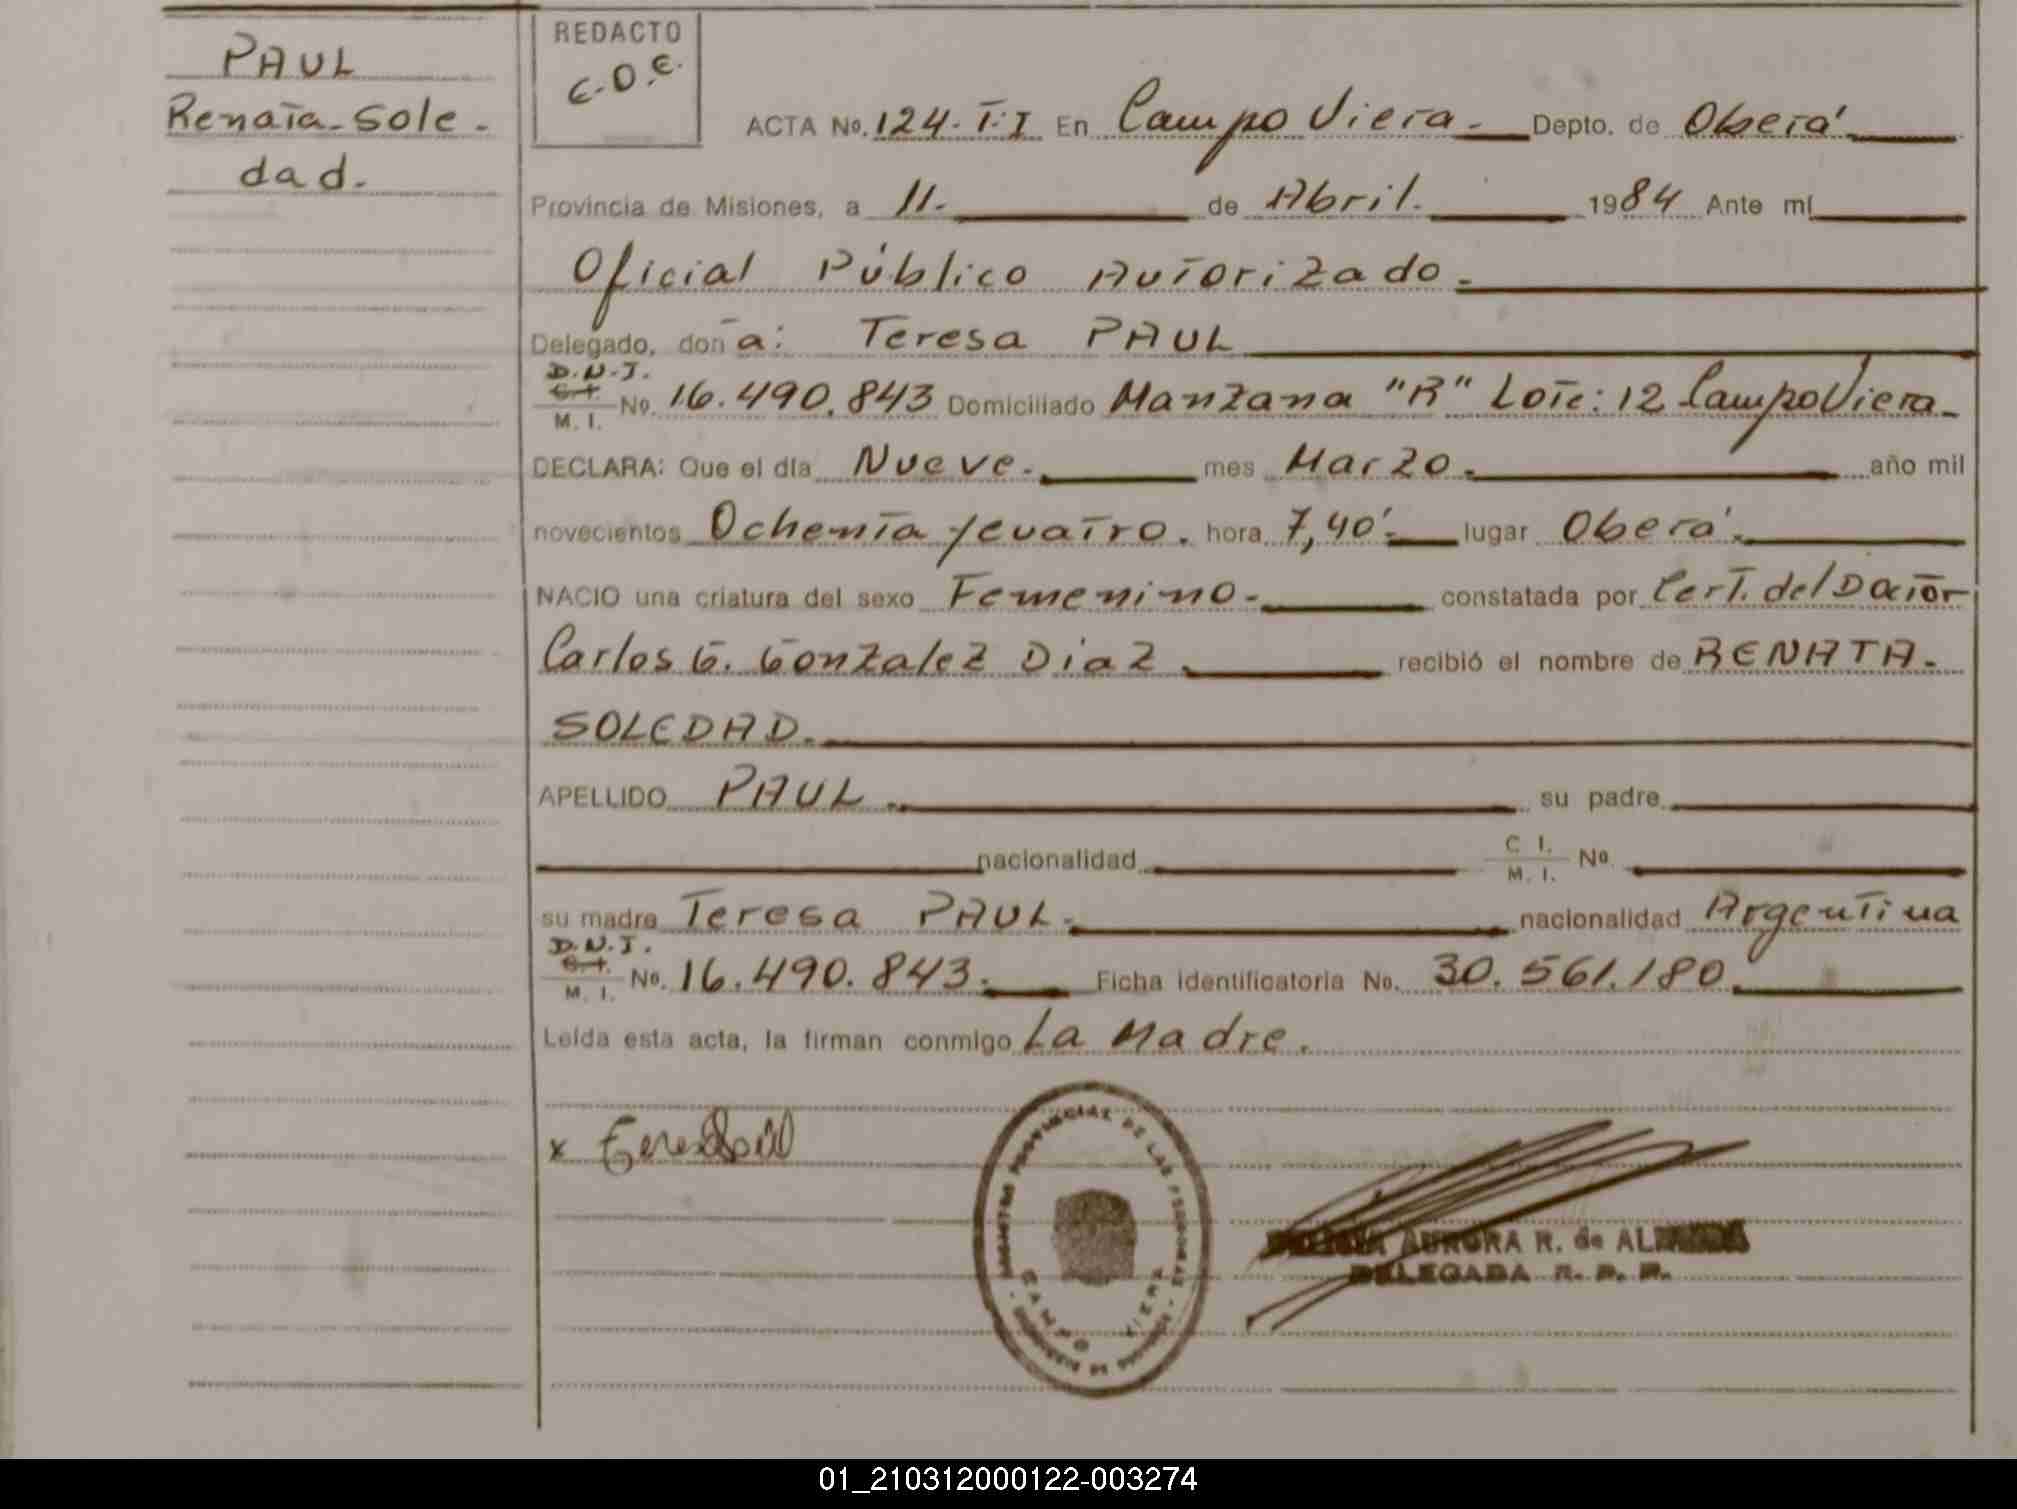 PAUL
Renata Sole-
dad.
REDACTO
C.D.E.
ACTA No. 124-T:I En Campo Viera. Depto. de Oberá
Provincia de Misiones, a 11. de Abril. 1984 Ante mí
Oficial Público Autorizado.
Delegado, don a: Teresa PAUL
D.N.I.
C.I.
M. I. No. 16.490.843 Domiciliado Manzana "R" Lote: 12 Campo Viera.
DECLARA: Que el día Nueve. mes Marzo. año mil
novecientos Ochenta y cuatro. hora 7,40' lugar Oberá.
NACIO una criatura del sexo Femenino. constatada por Cert. del Doctor
Carlos G. Gonzalez Diaz. recibió el nombre de RENATA.
SOLEDAD.
APELLIDO PAUL. su padre
nacionalidad C I. M. I. No.
su madre Teresa PAUL. nacionalidad Argentina
D.N.I.
C.I.
M. I. No. 16.490.843. Ficha identificatoria No. 30.561.180.
Leída esta acta, la firman conmigo La Madre.
x
REGISTRO PROVINCIAL DE LAS PERSONAS
CAMPO VIERA
AURORA R. de
DELEGADA R. P. P.
01_210312000122-003274